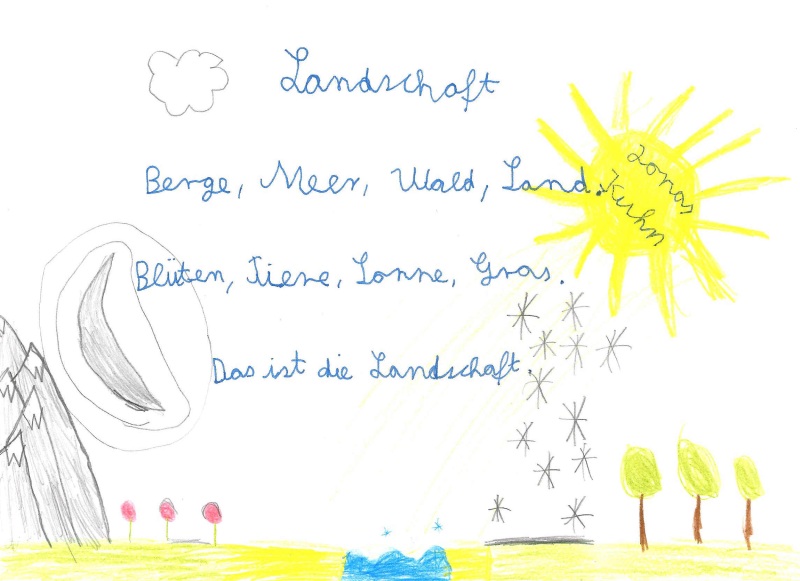 Landschaft
Berge, Meer, Wald, Land.
Jonas
Kuhn
Blüten, Tiere, Sonne, Gras.
Das ist die Landschaft.